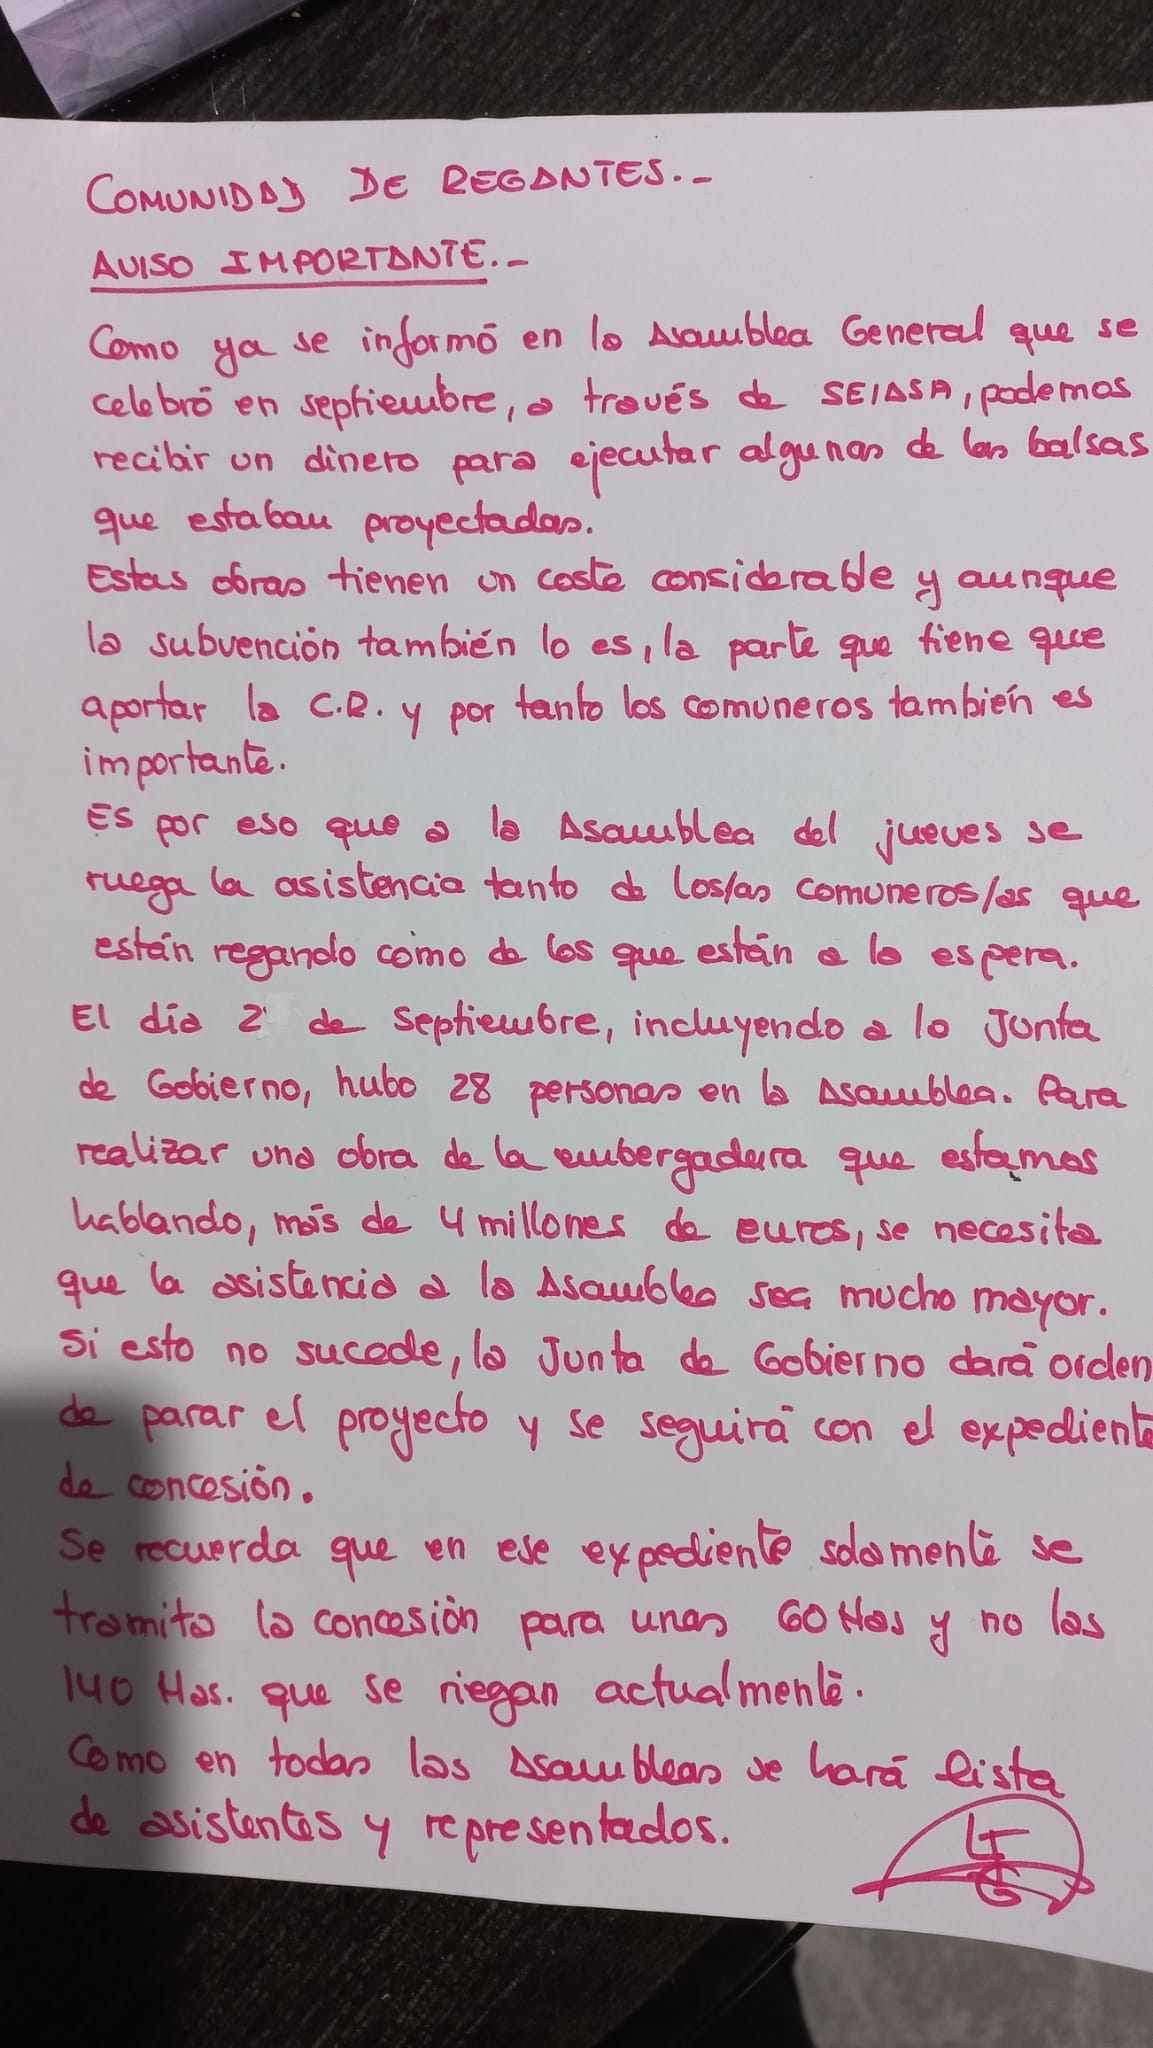 COMUNIDAD DE REGANTES.-
AVISO IMPORTANTE.-
Como ya se informó en la Asamblea General que se
celebró en septiembre, a través de SEIASA, podemos
recibir un dinero para ejecutar algunas de las balsas
que estaban proyectadas.
Estas obras tienen un coste considerable y aunque
la subvención también lo es, la parte que tiene que
aportar la C.R. y por tanto los comuneros también es
importante.
Es por eso que a la Asamblea del jueves se
ruega la asistencia tanto de los/as comuneros/as que
están regando como de los que están a la espera.
El día 2 de Septiembre, incluyendo a la Junta
de Gobierno, hubo 28 personas en la Asamblea. Para
realizar una obra de la embergadura que estamos
hablando, más de 4 millones de euros, se necesita
que la asistencia a la Asamblea sea mucho mayor.
Si esto no sucede, la Junta de Gobierno dará orden
de parar el proyecto y se seguirá con el expediente
de concesión.
Se recuerda que en ese expediente solamente se
tramita la concesión para unas 60 Has y no las
140 Has. que se riegan actualmente.
Como en todas las Asambleas se hará lista
de asistentes y representados.